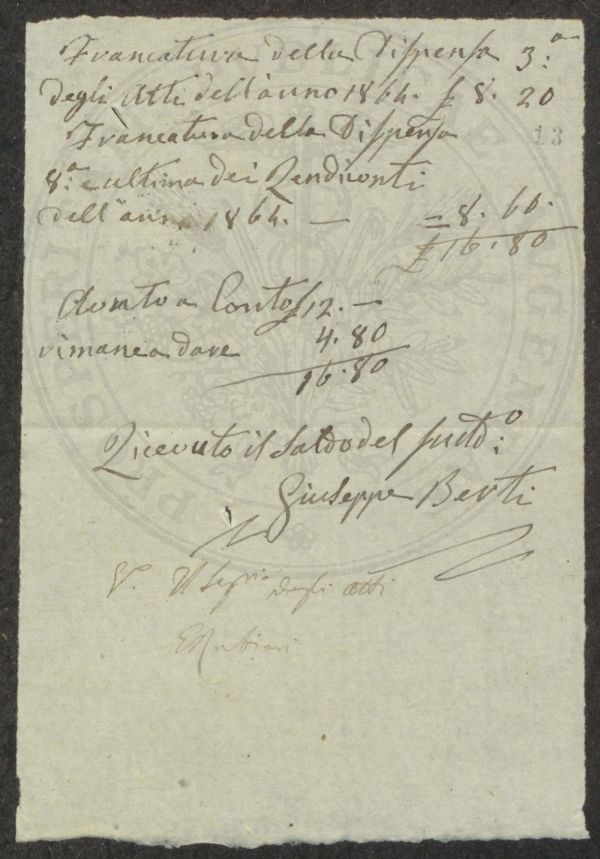 Francatura della Dispensa 3.ª
degli Atti dell'anno 1864. £ 8. 20
Francatura della Dispensa
13
8.ª e ultima dei Rendiconti
dell'anno 1864. — = 8. 60.
£ 16. 80
Avuto a Conto £ 12. —
rimane a dare 4. 80
16. 80
Ricevuto il Saldo del sudd.º
Giuseppe Berti
V.º Il Seg.rio degli Atti
E Rubieri